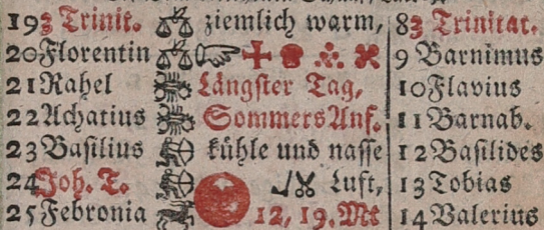 19 3 Trinit. ziemlich warm, 8 3 Trinitat.
20 Florentin 9 Barnimus
21 Rahel Längster Tag, 10 Flavius
22 Achatius Sommers Anf. 11 Barnab.
23 Basilius kühle und nasse 12 Basilides
24 Joh. T. Luft, 13 Tobias
25 Febronia 12, 19. Mt 14 Valerius